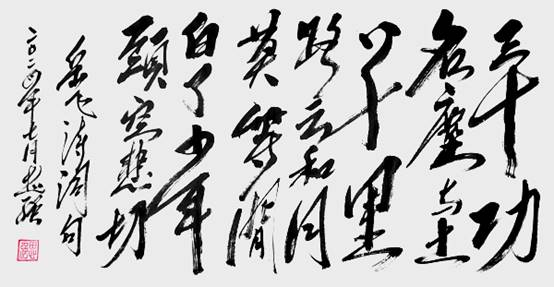 三十功
名塵与土
八千里
路云和月
莫等閒
白了少年
頭空悲切
岳飞诗词句
二〇二四年七月